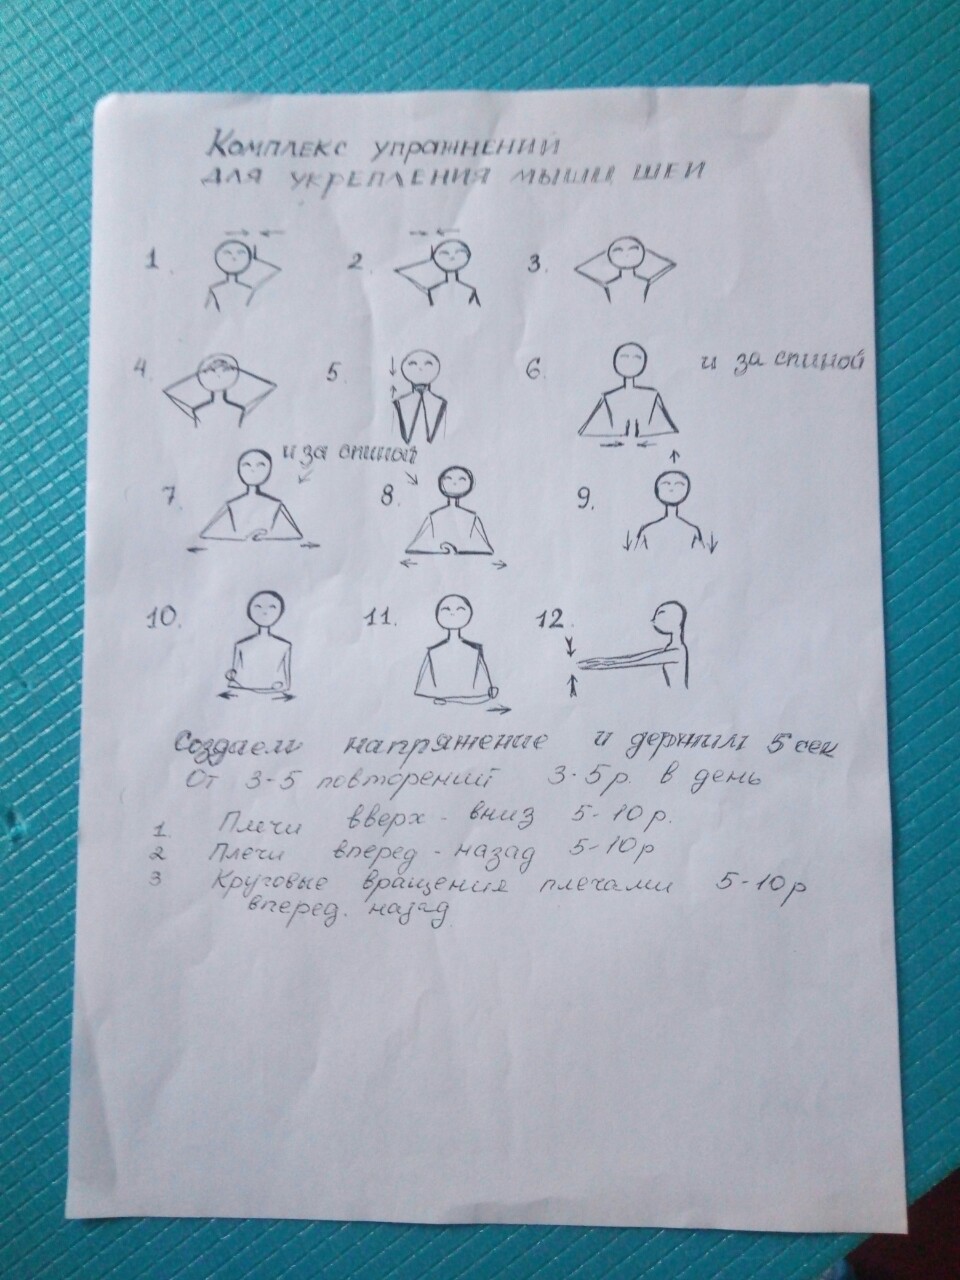 Комплекс упражнений
для укрепления мышц шеи
1. 2. 3.
4. 5. 6. и за спиной
и за спиной
7. 8. 9.
10. 11. 12.
Создаем напряжение и держим 5 сек
От 3-5 повторений 3-5р. в день
1. Плечи вверх - вниз 5-10р.
2 Плечи вперед - назад 5-10р
3 Круговые вращения плечами 5-10р
вперед. назад